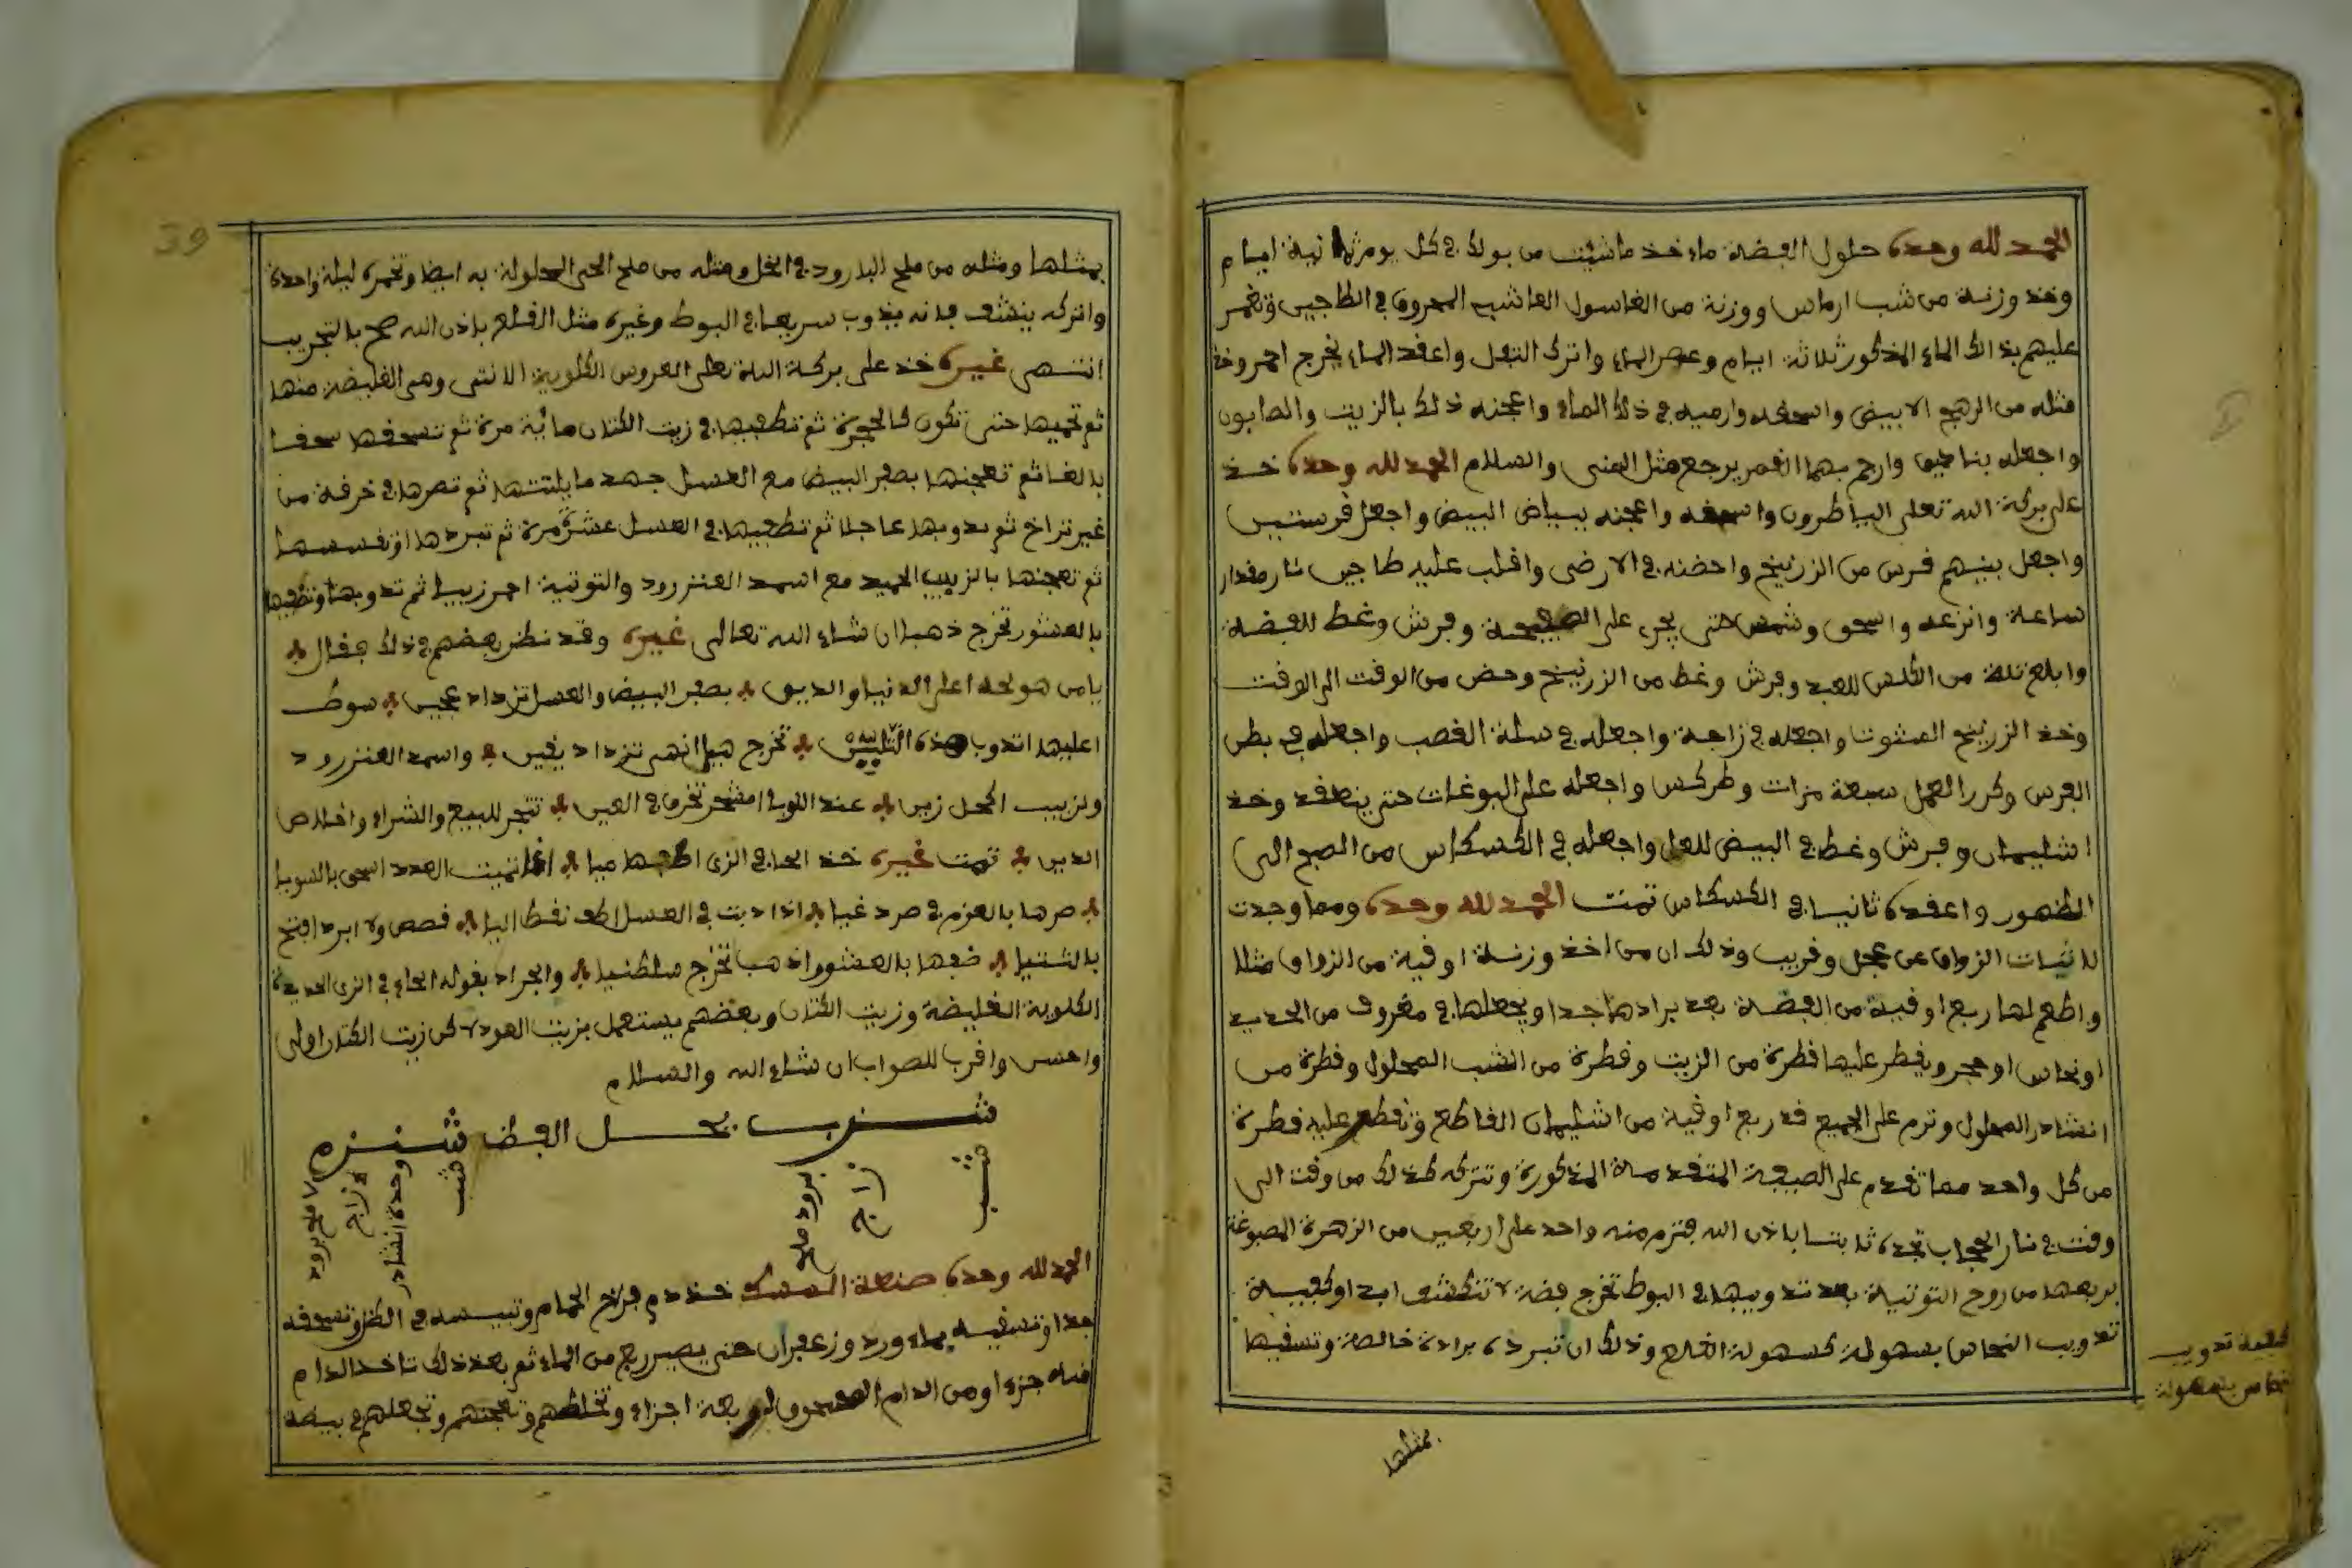 الحمد لله وحده حلول الفضة ماء خذ ما شئت من بولك في كل يوم ثمانية ايام
وخذ وزنة من شب ارماس ووزنة من الغاسول العاشب المحروق في الطاجين وتغمر
عليهم بذالك الماء المذكور ثلاثة ايام وعصر الماء واترك الثفل واعقد الماء يخرج احمر وخذ
مثله من الرهج الابيض واسحقه وارميه في ذلك الماء واعجنه ذلك بالزيت والصابون
واجعله بنادق وارجم بهما القمر يرجع مثل والسلام الحمد لله وحده خذ
على بركة الله تعلى الياطرون واسحقه واعجنه ببياض البيض واجعل قرستين
واجعل بينهم قرس من الزرنيخ واحضنه في الارض واقلب عليه طاجين نار مقدار
ساعة وانزعه واسحق وشمس حتى يجري على الصفيحة وفرش وغط للفضة
وابلغ ثلثة من الكلس للعبد وفرش وغط من الزرنيخ وحض من الوقت الى الوقت
وخذ الزرنيخ المثبوت واجعله في زاجة واجعله في سلة القصب واجعله في بطن
الفرس وكرر العمل سبعة مرات وطركس واجعله على البوغات حتى ينعقد وخذ
اسليمان وفرش وغط في البيض للعل واجعله في الكسكاس من الصبح الى
الظهور واعقده ثانيا في الكسكاس تمت الحمد لله وحده ومما وجدت
لاثبات الزواق عن عجل وقريب وذلك ان من اخذ وزنة اوقية من الزواق مثلا
واطعم لها ربع اوقية من الفضة بعد برادها جدا ويجعلها في مغروف من الحديد
او نحاس او حجر ويقطر عليها قطرة من الزيت وقطرة من الشب المحلول وقطرة من
انشادر المحلول وترم على الجميع قدر ربع اوقية من اسليمان القاطع وتقطر عليه قطرة
من كل واحد مما تقدم على الصيغة المتقدمة المذكورة وتتركه كذلك من وقت الى
وقت في نار العجاب تجده ثابتا باذن الله فترم منه واحد على اربعين من الزهرة المصبوغة
بربعها من روح التوتية بعد تدويبها في البوط تخرج فضة لا تنكشف ابدا وكيفية
تدويب النحاس بسهولة كسهولة القلع وذلك ان تبرده برادة خالصة وتسقيها
كيفية تدويب
نحاس بسهولة
بمثلها
39
بمثلها ومثله من ملح البارود في الخل ومثله من ملح الحي المحلولة به ايضا وتخمره ليلة واحدة
واتركه ينشف فانه يذوب سريعا في البوط وغيره مثل القلع باذن الله صح بالتجريب
انتهى غيره خذ على بركة الله تعلى العروس الكلوبية الانثى وهي الغليضة منها
ثم تحميها حتى تكون كالجمرة ثم تطفيها في زيت الكتان مائة مرة ثم تسحقها سحقا
بالغا ثم تعجنها بصفر البيض مع العسل جهد ما يلتتها ثم تصرها في خرقة من
غير تراخ ثم تدوبها عاجلا ثم تطفيها في العسل عشر مرة ثم تبردها او تفسسها
ثم تعجنها بالزبيب الجيد مع اسمد العنزرود والتوتية احمر زبيبا ثم تدوبها وتطفيها
بالعشور تخرج ذهبا ان شاء الله تعالى غيره وقد نظر بعضهم في ذلك فقال
يا من هو نحله اعلى الدنيا والدين بصفر البيض والعسل تزداد عجين سوط
اعليها اتدوب هذه التليس تخرج هيا انهى تزداد يقين واسمد العنزرود
ولزبيب اكحل زين عند التوبة امشجر تخرف العين تتجر للبيع والشراء واخلاص
الدين تمت غيره خذ الحاء في الزي اطفها ميا اغا تميت العدد اسحق بالسويا
صرها بالعزم في صرد غيا اذا دبت في العسل اطف تقط اليا قصص ولا ابرد افتح
بالشتيا ضعها بالعشور اذهب تخرج سلطنيا والمراد بقوله الحاء في الزي الحديدة
الكلوبة الغليضة وزيت الكتان وبعضهم يستعمل بزيت العود لاكن زيت الكتان اولى
واحسن واقرب للصواب ان شاء الله والسلام
شرب يحل الفض شنزم
شب
زاج
برود ملح
شب
وحدة انشادر
زاج
ملح برود
الحمد لله وحده صنعة المسك خذ دم فراخ الحمام وتيبسه في الظل وتسحقه
جدا وتسقيه بماء ورد وزعفران حتى يصير ريح من الماء ثم بعد ذلك تاخذ الدام
منه جزء او من الدام المسحوق اربعة اجزاء وتخلطهم وتعجنهم وتجعلهم في بيضة